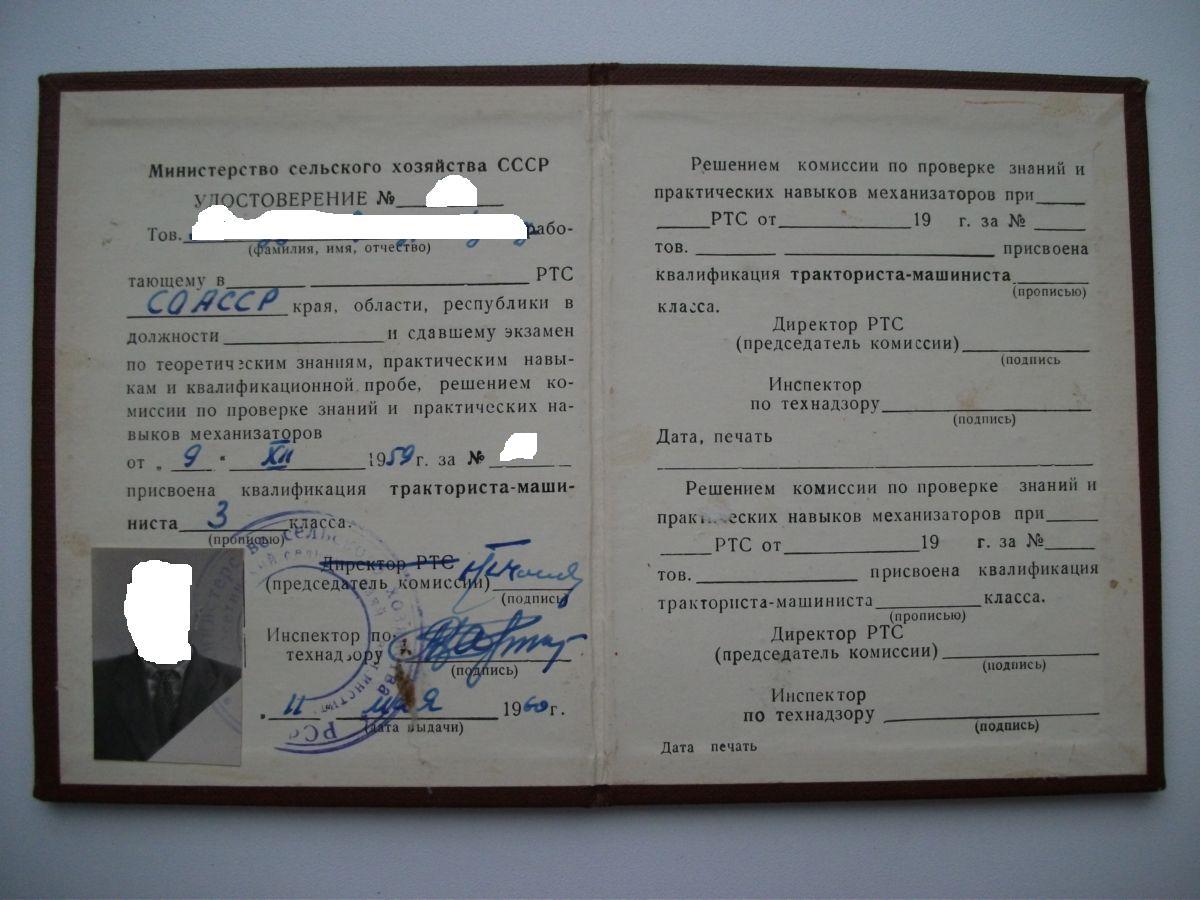 Министерство сельского хозяйства СССР
УДОСТОВЕРЕНИЕ №
Тов. рабо-
(фамилия, имя, отчество)
тающему в РТС
СОАССР края, области, республики в
должности и сдавшему экзамен
по теоретическим знаниям, практическим навы-
кам и квалификационной пробе, решением ко-
миссии по проверке знаний и практических на-
выков механизаторов
от „ 9 “ XII 1959 г. за №
присвоена квалификация тракториста-маши-
ниста 3 класса.
(прописью)
Директор РТС
(председатель комиссии)
(подпись)
Инспектор по
технадзору
(подпись)
„ 11 мая 1960 г.
(дата выдачи)
Решением комиссии по проверке знаний и
практических навыков механизаторов при
РТС от 19 г. за №
тов. присвоена
квалификация тракториста-машиниста
(прописью)
класса.
Директор РТС
(председатель комиссии)
(подпись
Инспектор
по технадзору
(подпись)
Дата, печать
Решением комиссии по проверке знаний и
практических навыков механизаторов при
РТС от 19 г. за №
тов. присвоена квалификация
тракториста-машиниста класса.
(прописью)
Директор РТС
(председатель комиссии)
(подпись)
Инспектор
по технадзору
(подпись)
Дата печать